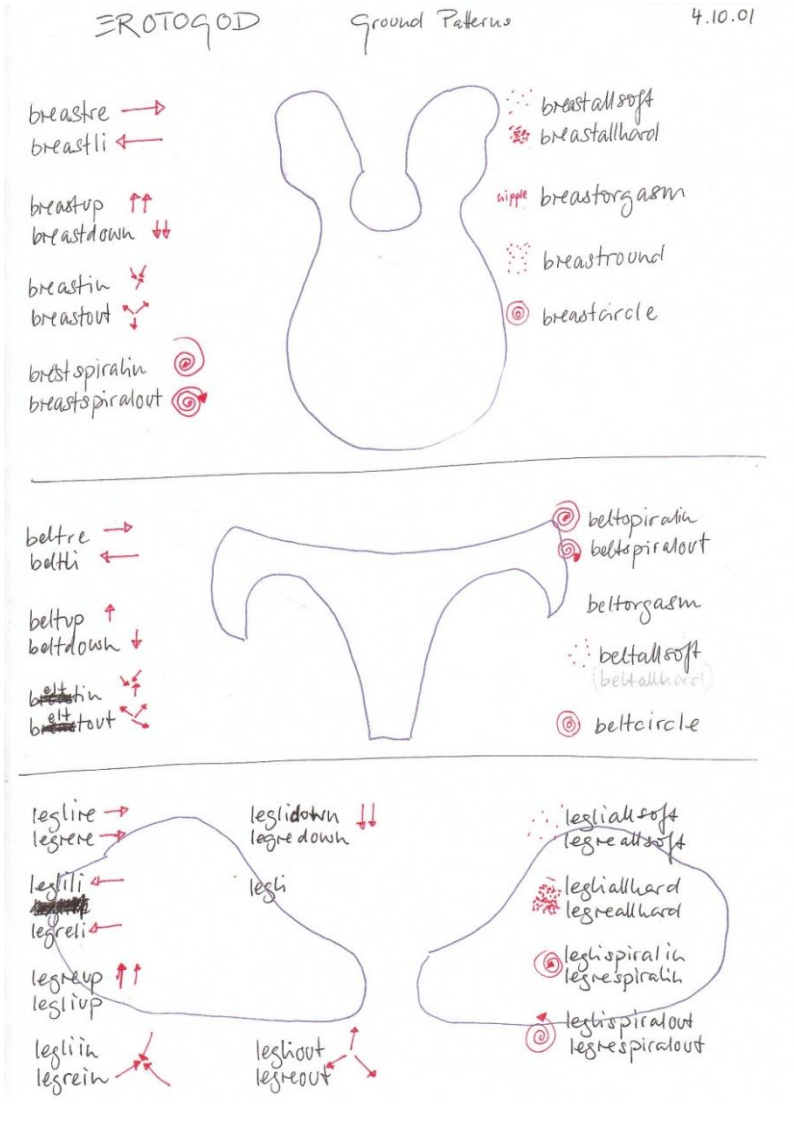 EROTOGOD Ground Patterns 4.10.01
breastre
breastli
breastup
breastdown
breastin
breastout
brestspiralin
breastspiralout
breastallsoft
breastallhard
nipple breastorgasm
breastround
breastcircle
beltre
beltli
beltup
beltdown
beltin
beltout
beltopiralin
beltspiralout
beltorgasm
beltallsoft
(beltallhard)
beltcircle
leglire
legrere
leglili
legreli
legreup
legliup
legliin
legrein
leglidown
legredown
legli
legliout
legreout
legliallsoft
legreallsoft
legliallhard
legreallhard
leglispiralin
legrespiralin
leglispiralout
legrespiralout